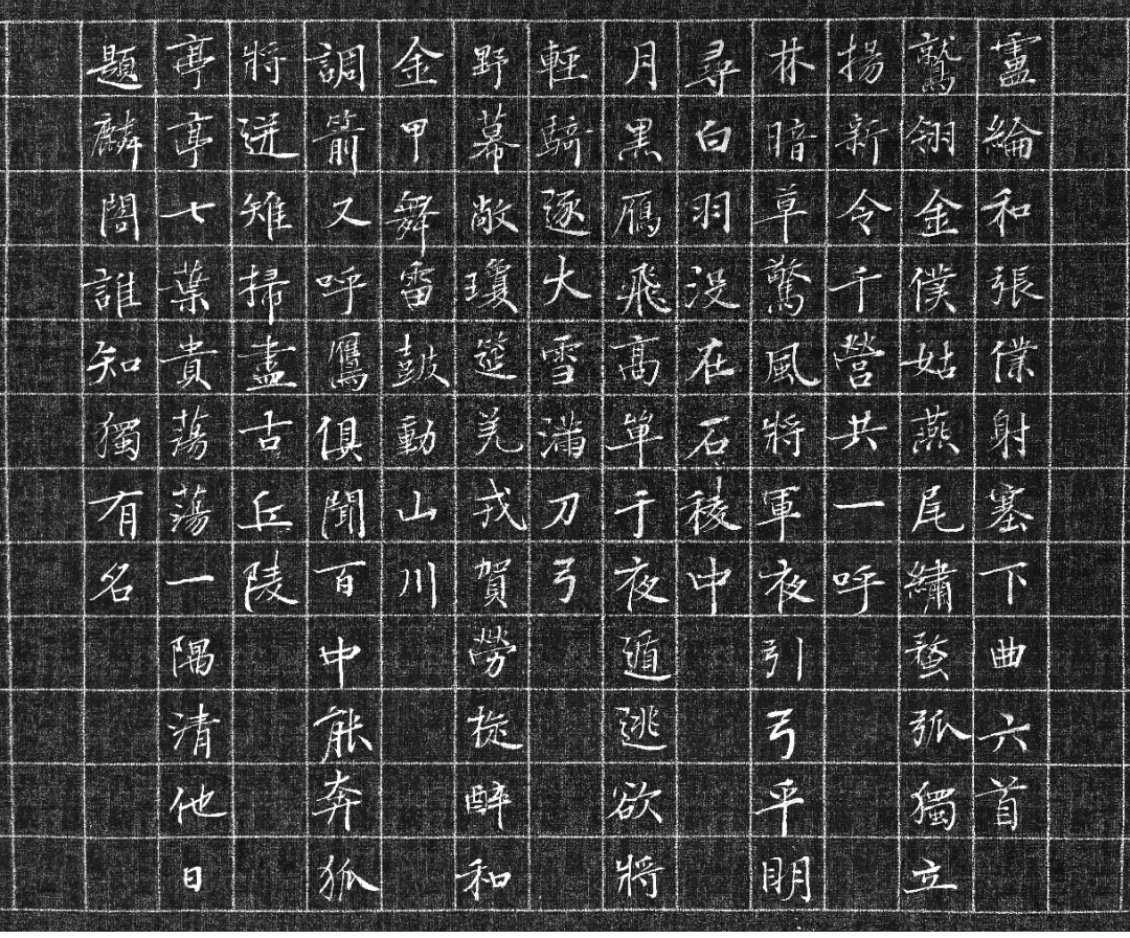 盧綸和張僕射塞下曲六首
鷲翎金僕姑燕尾繡蝥弧獨立
揚新令千營共一呼
林暗草驚風將軍夜引弓平明
尋白羽没在石稜中
月黑雁飛高單于夜遁逃欲將
輕騎逐大雪滿刀弓
野幕敞瓊筵羌戎賀勞旋醉和
金甲舞雷鼓動山川
調箭又呼鷹俱聞百中能奔狐
將迸雉掃盡古丘陵
亭亭七葉貴蕩蕩一隅清他日
題麟閣誰知獨有名